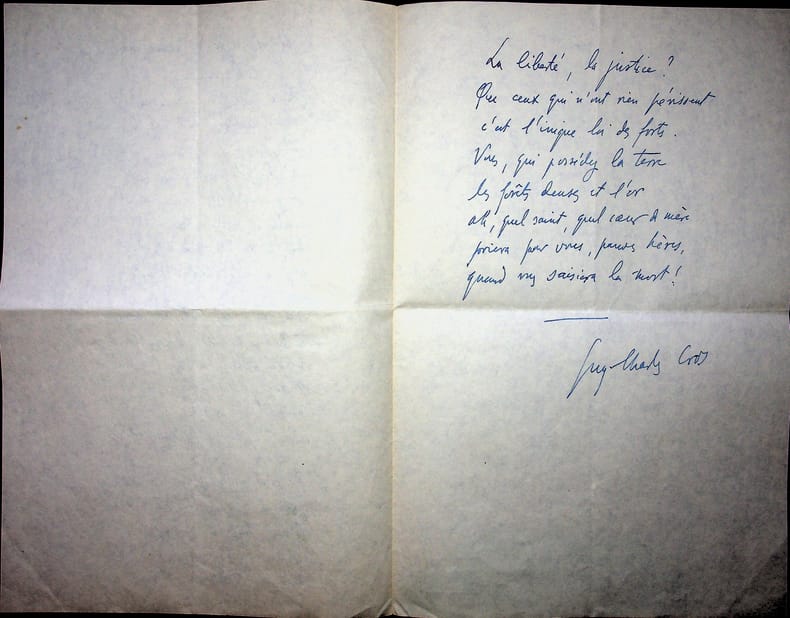 La liberté, la justice ?
Que ceux qui n'ont rien périssent
c'est l'unique loi des forts.
Vous, qui possédez la terre
les forêts denses et l'or
ah, quel saint, quel cœur de mère
priera pour vous, pauvres hères,
quand vous saisira la mort !
Guy-Charles Cros